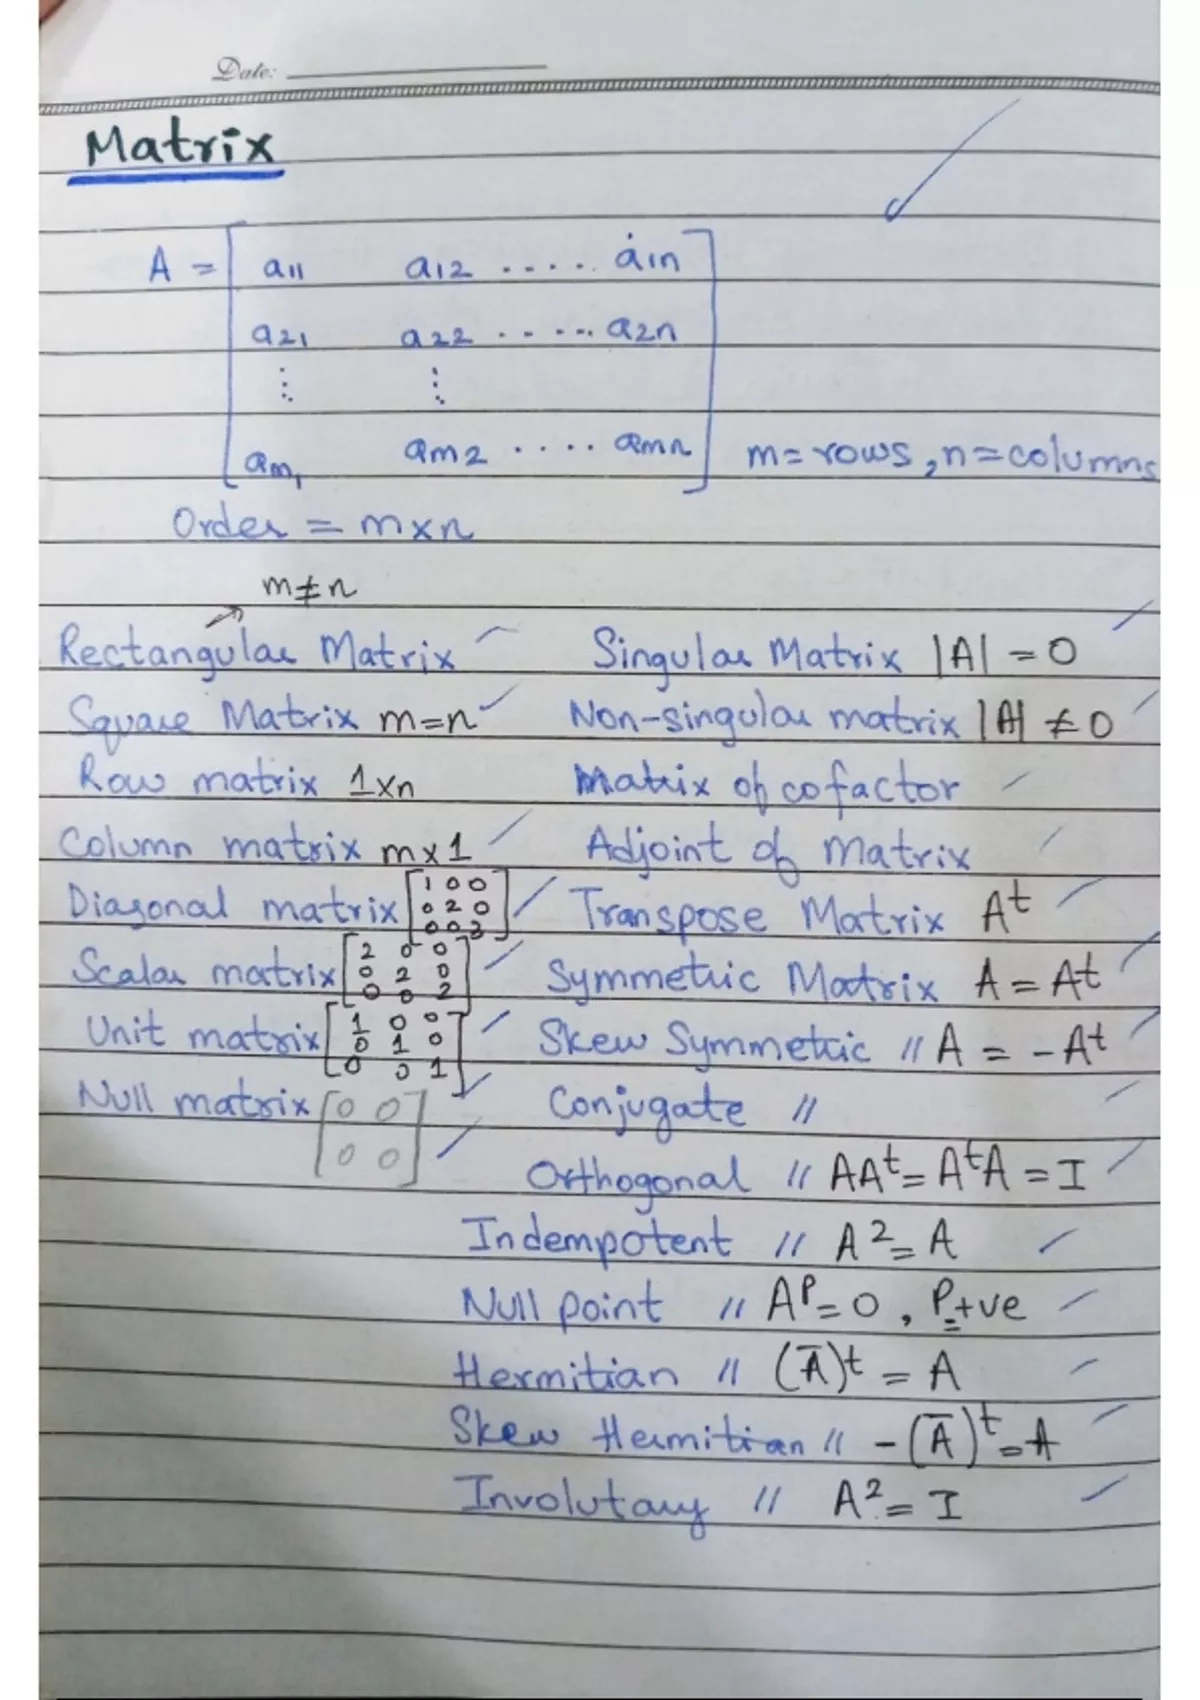 Date:
Matrix
A = [ a11 a12 ..... a1n
a21 a22 ..... a2n
⋮ ⋮
am1 am2 .... amn ] m= rows, n= columns
Order = m×n
m≠n
Rectangular Matrix
Square Matrix m=n
Row matrix 1×n
Column matrix m×1
Diagonal matrix [1 0 0
0 2 0
0 0 3]
Scalar matrix [2 0 0
0 2 0
0 0 2]
Unit matrix [1 0 0
0 1 0
0 0 1]
Null matrix [0 0
0 0]
Singular Matrix |A| = 0
Non-singular matrix |A| ≠ 0
Matrix of cofactor
Adjoint of Matrix
Transpose Matrix Aᵗ
Symmetric Matrix A = Aᵗ
Skew Symmetric // A = -Aᵗ
Conjugate //
Orthogonal // AAᵗ = AᵗA = I
Indempotent // A² = A
Null point // Aᴾ = 0, P=+ve
Hermitian // (Ā)ᵗ = A
Skew Hermitian // -(Ā)ᵗ = A
Involutary // A² = I